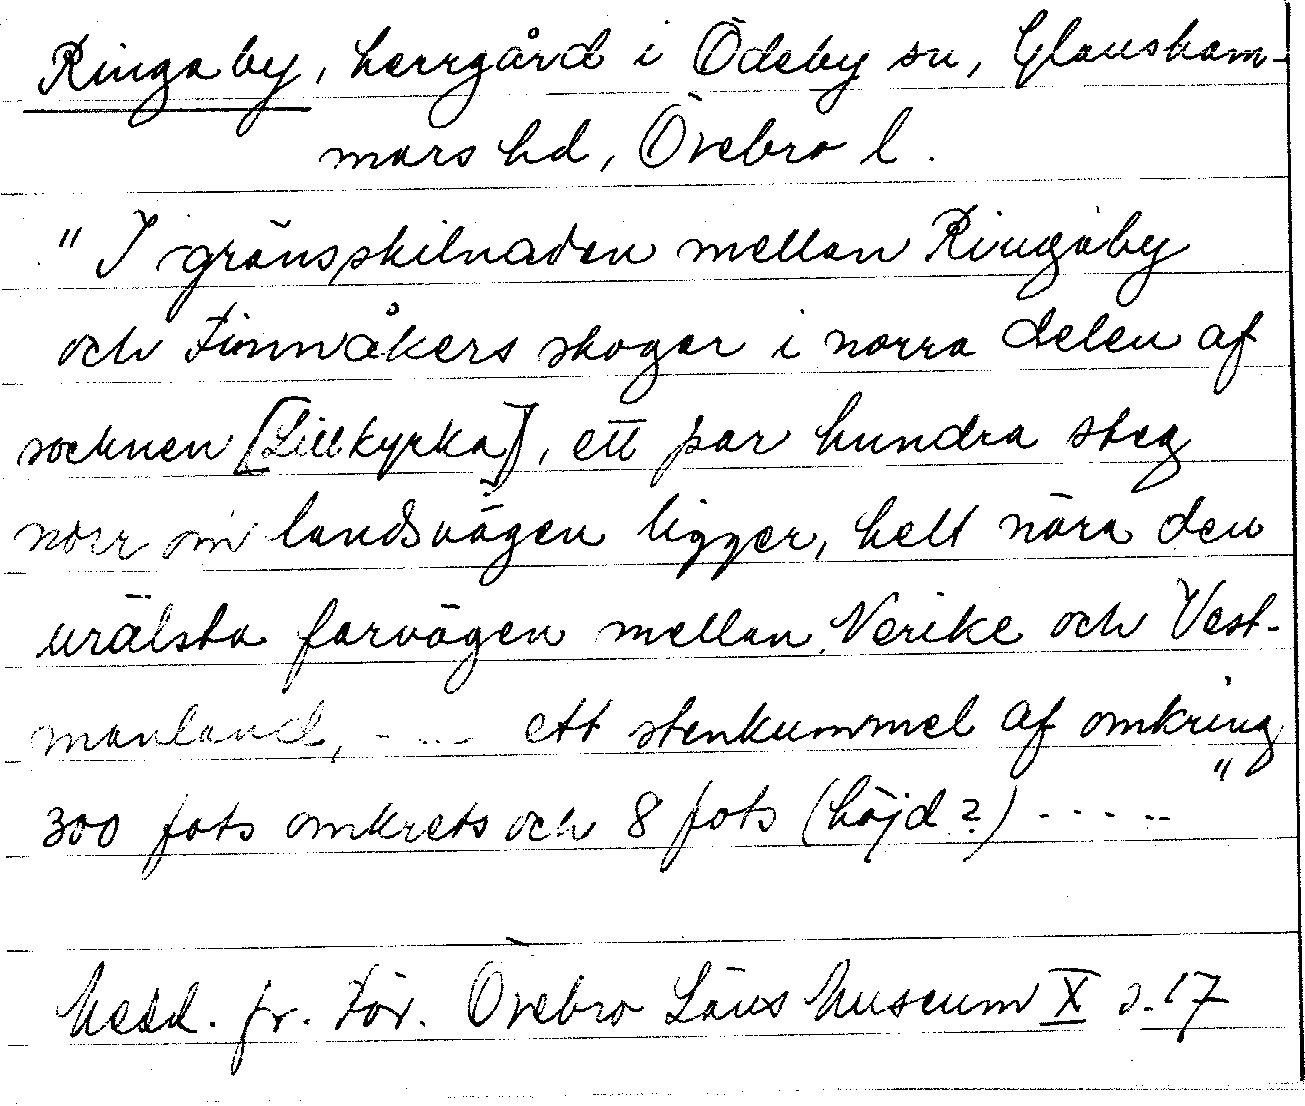 Ringaby, herrgård i Ödeby sn, Glansham-
mars hd, Örebro l.
"I gränsskilnaden mellan Ringaby
och Finnåkers skogar i norra delen af
socknen [Lillkyrka], ett par hundra steg
norr om landsvägen ligger, helt nära den
urälsta farvägen mellan Nerike och Vest-
manland, - - - ett stenkummel af omkring
300 fots omkrets och 8 fots (höjd?) - - - - - "
Medd. fr. För. Örebro Läns Museum X s. 17